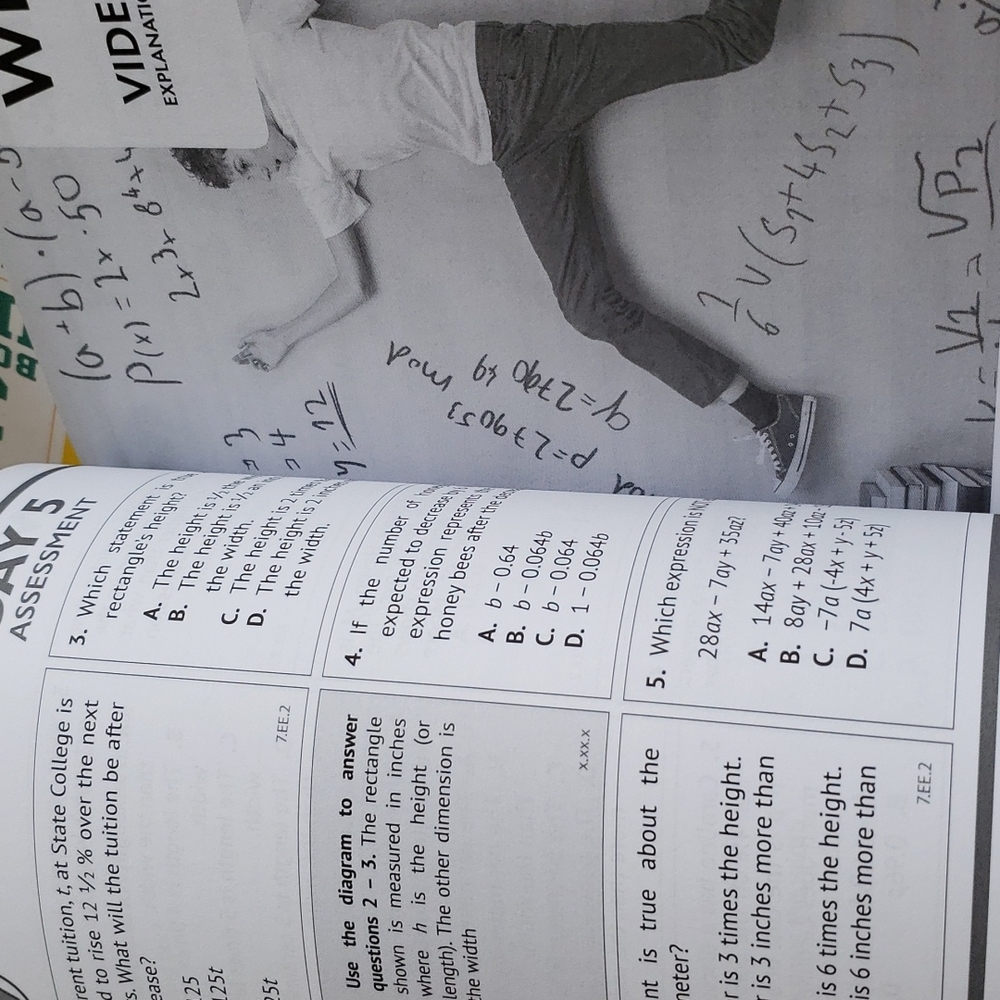 DAY 5
ASSESSMENT
rent tuition, t, at State College is
d to rise 12 ½ % over the next
s. What will the tuition be after
ease?
125
125t
25t
7.EE.2
Use the diagram to answer
questions 2 – 3. The rectangle
shown is measured in inches
where h is the height (or
length). The other dimension is
the width
x.xx.x
nt is true about the
meter?
r is 3 times the height.
r is 3 inches more than
is 6 times the height.
is 6 inches more than
7.EE.2
3. Which statement is
rectangle's height?
A. The height is ½ the
B. The height is ½ an
the width.
C. The height is 2 times
D. The height is 2 inches
the width.
4. If the number of
expected to decrease
expression represents
honey bees after the
A. b – 0.64
B. b – 0.064b
C. b – 0.064
D. 1 – 0.064b
5. Which expression is
28ax – 7ay + 35az?
A. 14ax – 7ay + 40az
B. 8ay + 28ax + 10az
C. -7a (-4x + y - 5z)
D. 7a (4x + y + 5z)
W
VIDE
EXPLANATIO
(a + b) · (a - 
P(x) = 2x · 50
2x 3x 8 4x
= 3
= 4
y = 12
p=279053
q=2790 49 mod
1/6 V (S1 + 4S2 + S3)
V1 = √P2